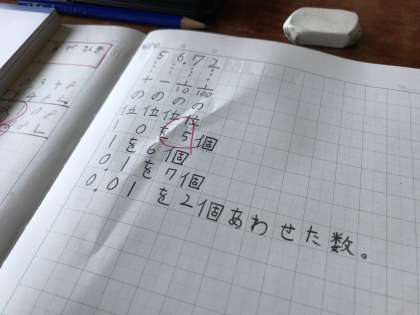 56.72
十一1/10 1/100
のののの
位位位位
10を5個
1を6個
0.1を7個
0.01を2個あわせた数。